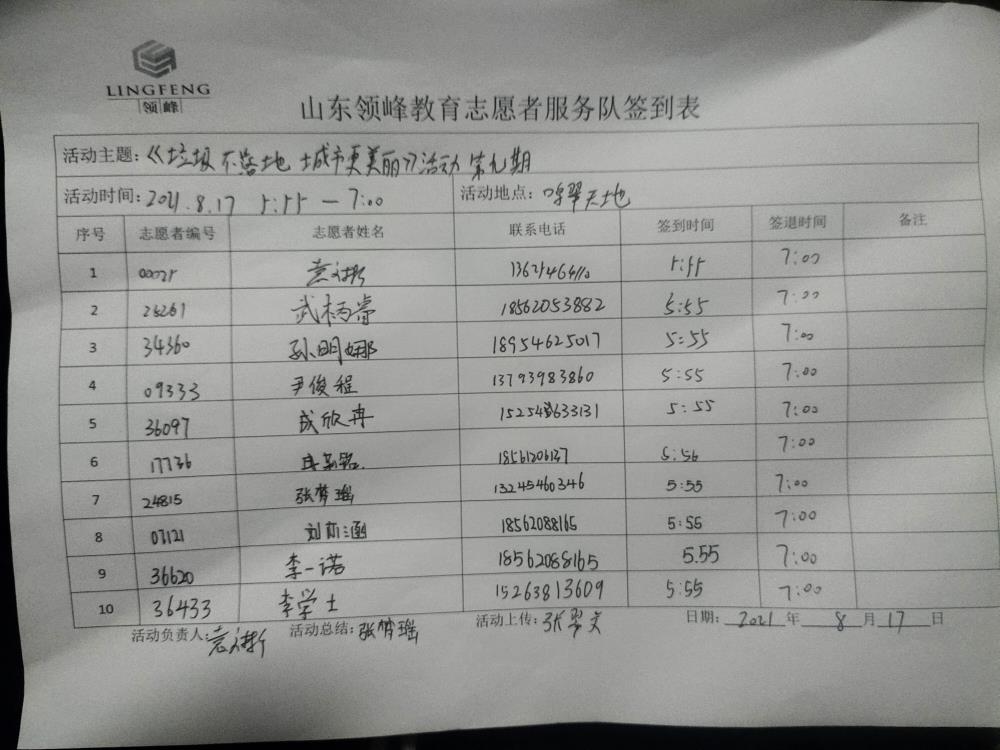 LINGFENG
领峰
山东领峰教育志愿者服务队签到表
活动主题:《垃圾不落地 城市更美丽》活动 第九期
活动时间: 2021.8.17 5:55 — 7:00 活动地点: 天地
序号 志愿者编号 志愿者姓名 联系电话 签到时间 签退时间 备注
1 5:55 7:00
2 武柄 18562053882 5:55 7:00
3 34360 孙明娜 18954625017 5:55 7:00
4 09333 尹俊程 13793983860 5:55 7:00
5 36097 成欣冉 5:55 7:00
6 17736 5:56 7:00
7 24815 张梦瑶 13245460346 5:55 7:00
8 07121 刘 涵 18562088165 5:55 7:00
9 36620 李一诺 18562088165 5.55 7:00
10 36433 李学士 15263813609 5:55 7:00
活动负责人: 活动总结: 张梦瑶 活动上传: 张翠文 日期: 2021 年 8 月 17 日